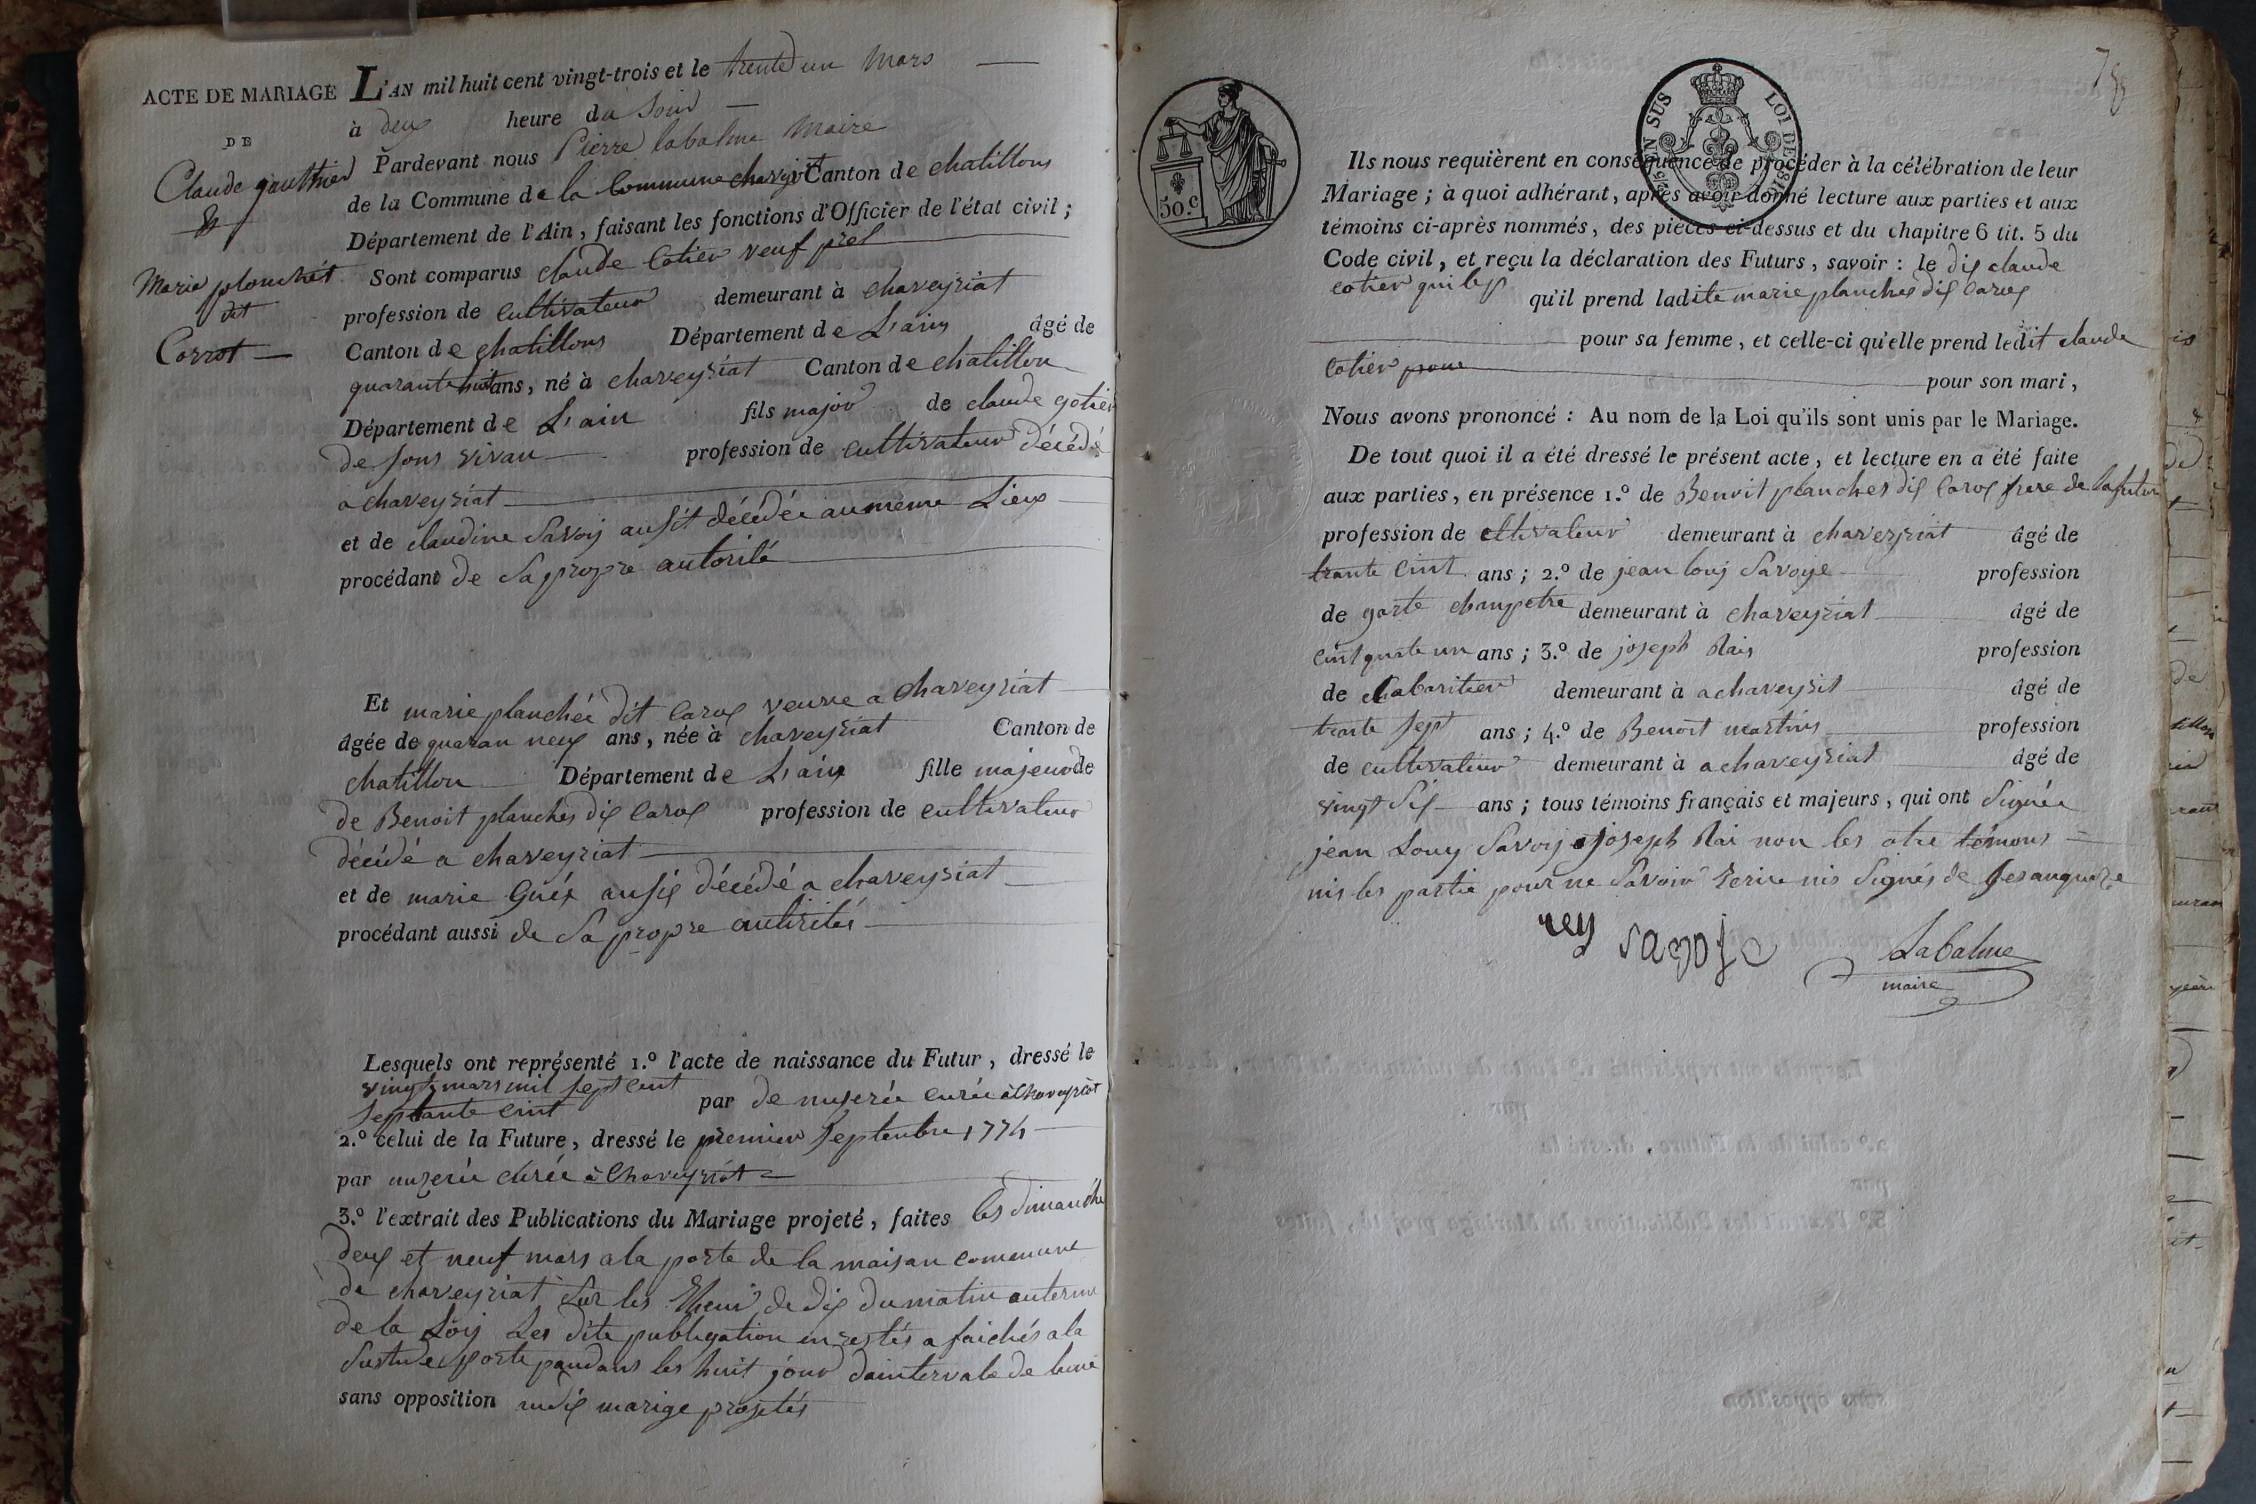 ACTE DE MARIAGE
DE
Claude gauthier
&
Marie planchét
dit
Corrot
L'AN mil huit cent vingt-trois et le trente un Mars
à deux heure du Soir
Pardevant nous Pierre labalme Maire
de la Commune de la Commune chaveyriat Canton de chatillons
Département de l'Ain, faisant les fonctions d'Officier de l'état civil;
Sont comparus claude Cotier veuf
profession de cultivateur demeurant à chaveyriat
Canton de chatillons Département de L'ain âgé de
quarante huit ans, né à chaveyriat Canton de chatillon
Département de L'ain fils major de claude gotier
de sons vivan profession de cultivateur décédé
a chaveyriat
et de claudine Savoy ausit décédée au meme Lieux
procédant de Sa propre autorité
Et marie planchée dit Carox veuve a Chaveyriat
âgée de quaran neux ans, née à chaveyriat Canton de
chatillon Département de L'ain fille majeur de
de Benoit planches dix Carox profession de cultivateur
décédé a chaveyriat
et de marie Guéx ausix décédé a chaveyriat
procédant aussi de Sa propre autirités
Lesquels ont représenté 1.º l'acte de naissance du Futur, dressé le
vingt mars mil sept cent
septante cint par de nuzerie curée à Chaveyriat
2.º celui de la Future, dressé le premier Septembre 1774
par nuzerie curée à Chaveyriat
3.º l'extrait des Publications du Mariage projeté, faites les dimanche
deux et neuf mars a la porte de la maison commune
de chaveyriat Sur les de dix du matin
de la Loix Les dite publigation a faichés a la
porte pandans les huit jour daintervale de
sans opposition marige projetés
50.c
SUS LOI DE 1816
78
Ils nous requièrent en conséquence de procéder à la célébration de leur
Mariage; à quoi adhérant, après avoir donné lecture aux parties et aux
témoins ci-après nommés, des pièces ci-dessus et du chapitre 6 tit. 5 du
Code civil, et reçu la déclaration des Futurs, savoir: le dix claude
cotier qu'il prend ladite marie planches dix Carox
pour sa femme, et celle-ci qu'elle prend ledit claude
Cotier pour son mari,
Nous avons prononcé: Au nom de la Loi qu'ils sont unis par le Mariage.
De tout quoi il a été dressé le présent acte, et lecture en a été faite
aux parties, en présence 1.º de Benoit planches dix Carox frere de la futur
profession de cltivateur demeurant à chaveyriat âgé de
trante cint ans; 2.º de jean louj Savoye profession
de garte champetre demeurant à chaveyriat âgé de
cint quate un ans; 3.º de joseph Rais profession
de Cabaritier demeurant à achaveyrit âgé de
trante sept ans; 4.º de Benoit martins profession
de cultivateur demeurant à achaveyriat âgé de
vingt Six ans; tous témoins français et majeurs, qui ont Signée
jean Louy Savoy joseph Rai non les otre témons
nis les partie pour ne Savoir Ecrire nis Signés de
rey savoye Labalme
maire